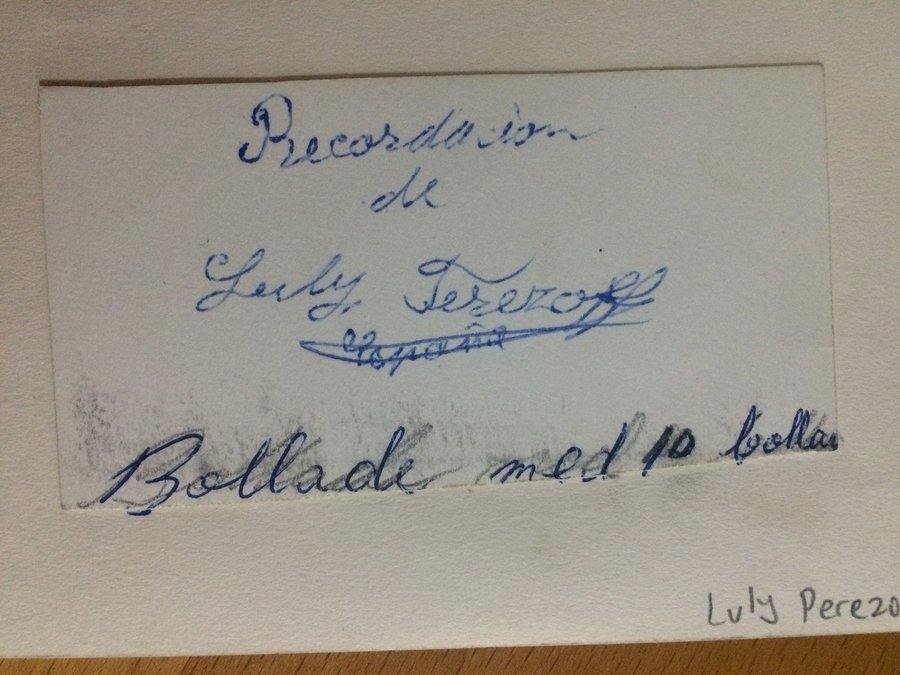 Recordacion
de
Luly Perezoff
España
Bollade med 10 bollar
Luly Perezo